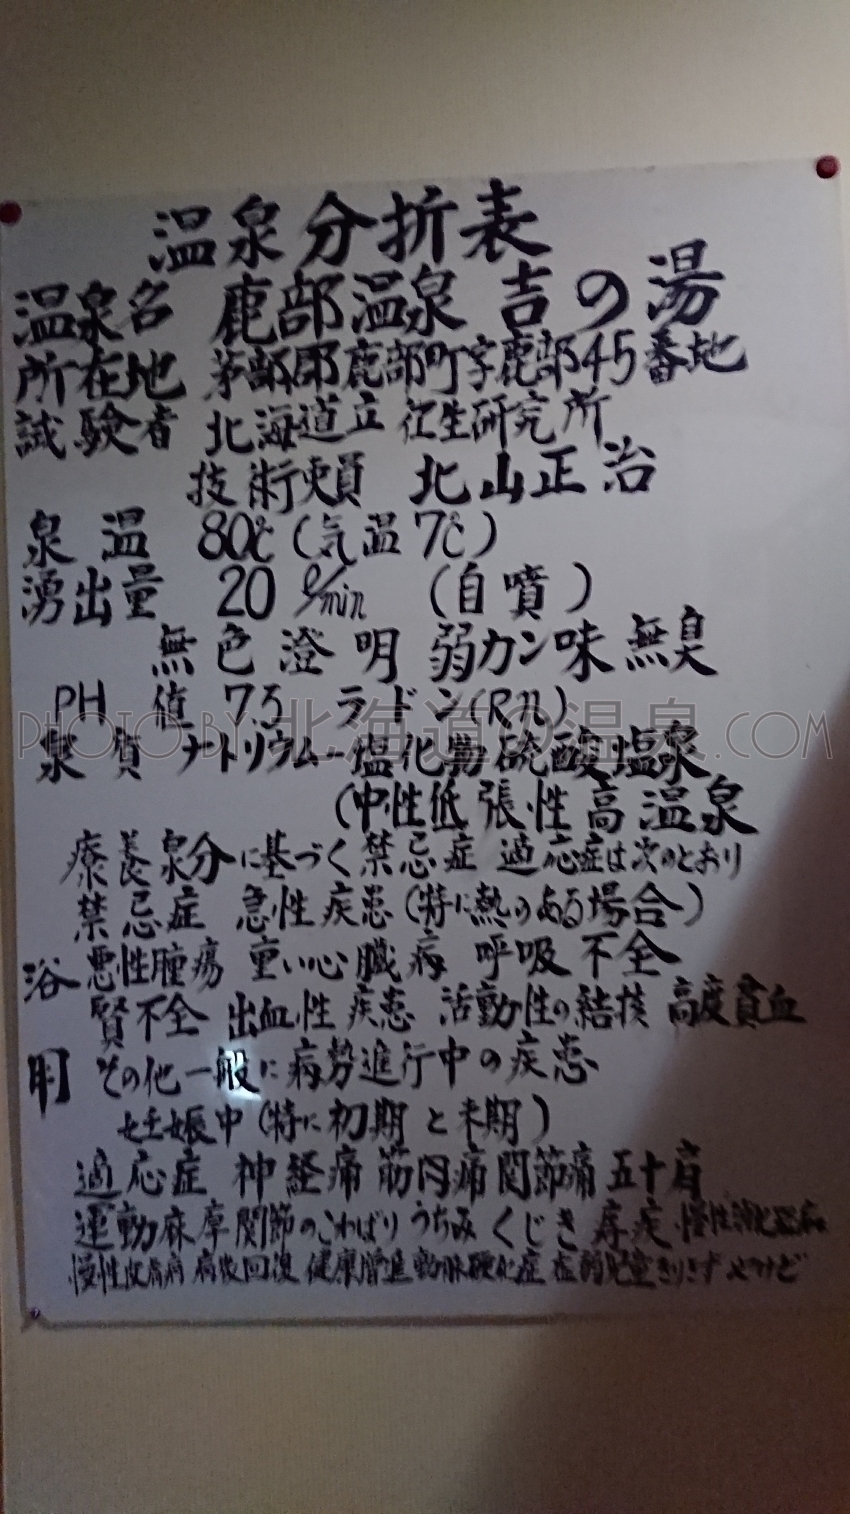 温泉分折表
温泉名 鹿部温泉 吉の湯
所在地 茅部郡鹿部町字鹿部45番地
試験者 北海道立 衛生研究所
技術吏員 北山正治
泉温 80℃(気温7℃)
湧出量 20 ℓ/min (自噴)
無色澄明 弱カン味 無臭
PH 値 7.5 ラドン(Rn)
PHOTO BY 北海道の温泉.COM
泉質 ナトリウムー塩化物硫酸塩泉
(中性低張性高温泉
療養泉分に基づく禁忌症 適応症は次のとおり
禁忌症 急性疾患(特に熱のある場合)
浴 悪性腫瘍 重い心臓病 呼吸不全
腎不全 出血性疾患 活動性の結核 高度貧血
用 その他一般に病勢進行中の疾患
妊娠中(特に初期と末期)
適応症 神経痛 筋肉痛 関節痛 五十肩
運動麻痺 関節のこわばり うちみ くじき 痔疾 慢性消化器病
慢性皮膚病 病後回復 健康増進 動脈硬化症 虚弱児童 きりきず やけど